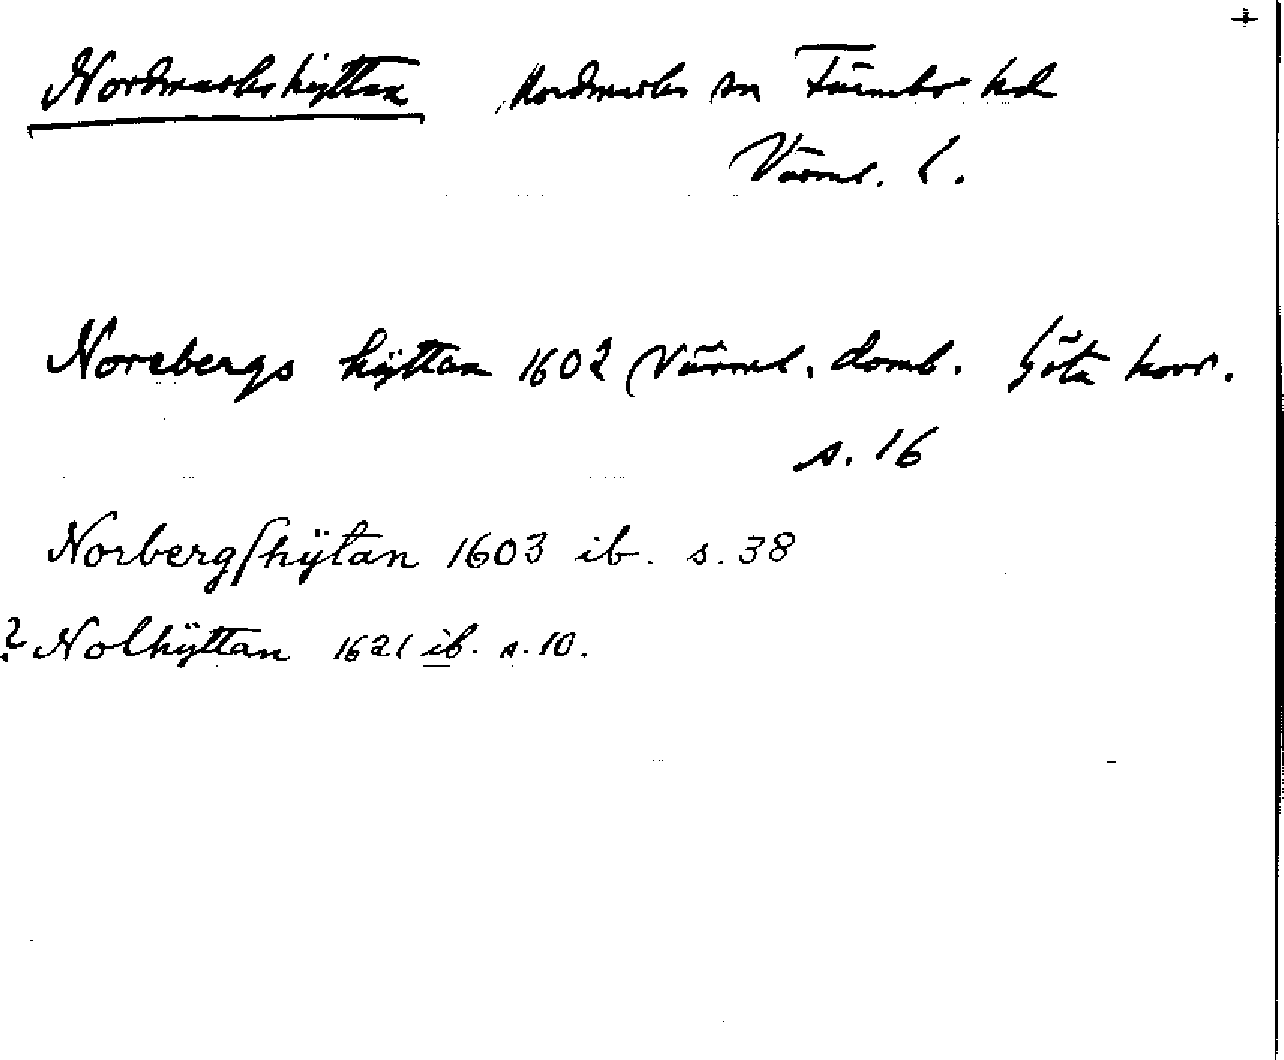 +
Nordmarkshyttan Nordmarks sn Färnebo hd
Värml. l.
Norebergs hÿttan 1602 Värml. domb. Göta hovr.
s. 16
Norbergſhÿtan 1603 ib. s. 38
? Nolhÿttan 1621 ib. s. 10.